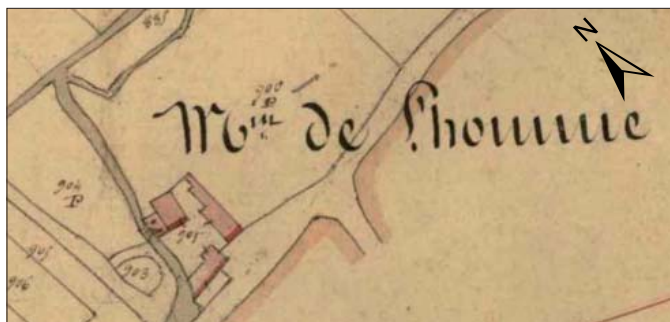 N
885
900
P
Mⁱⁿ de l'homme
904
P
901
905
903
906